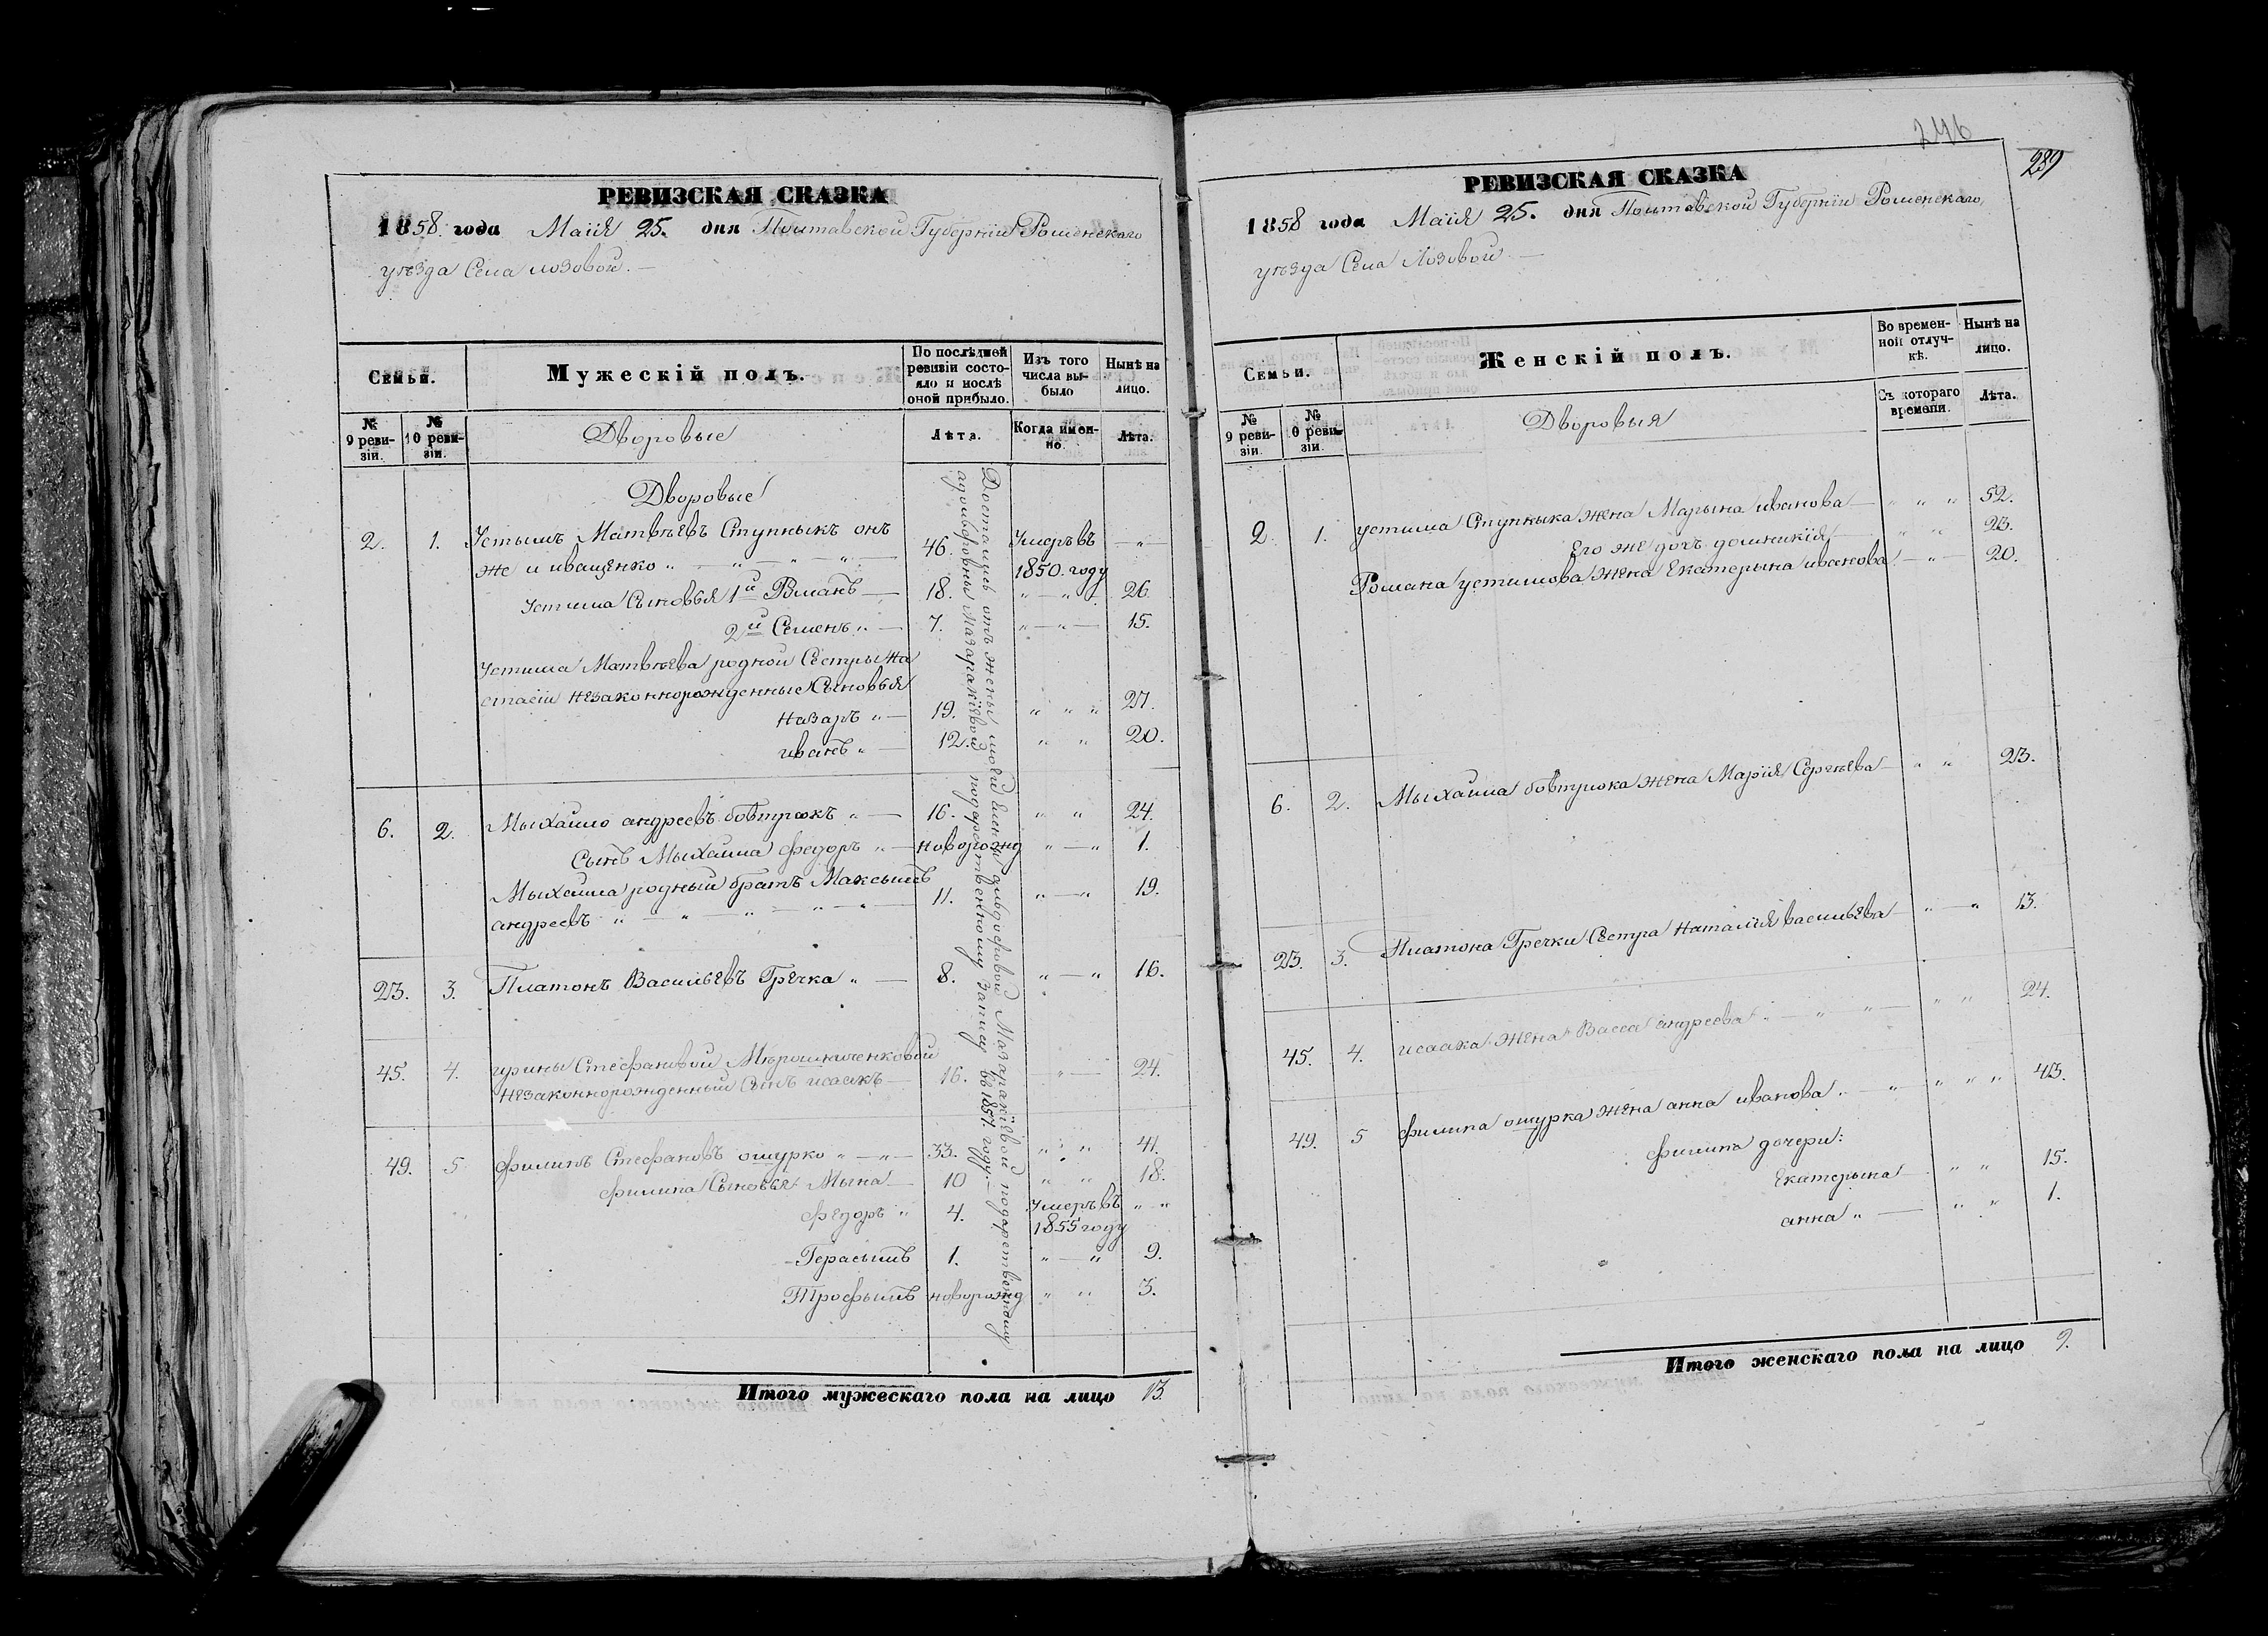 РЕВИЗСКАЯ СКАЗКА
1858. года Маія 25. дня Полтавской Губерніи Роменскаго
уѣзда Села лозовой. —
Семьи.
Мужескій полъ.
По послѣдней ревизіи состояло и послѣ оной прибыло.
Изъ того числа выбыло
Нынѣ на лицо.
№ 9 ревизіи.
№ 10 ревизіи.
Дворовые
Лѣта.
Когда именно.
Лѣта.
Дворовые
2. 1. Устымъ Матвѣевъ Ступныкъ онъ
же и иващенко „ — „ — „ — „ — 46. Умеръ въ 1850. году — „ —
Устима Сыновья 1й Романъ — 18. „ — „ 26
2й Семенъ „ — 7. „ — „ — 15.
Устима Матвѣева родной Сестры На
стасіи незаконнорожденные Сыновья
Назаръ „ — 19. „ „ „ 27.
иванъ „ — 12. „ „ 20.
6. 2. Мыхайло андреевъ бовтрюкъ „ — 16. „ „ 24.
Сынъ Мыхайла федоръ „ — новорожд „ — „ 1.
Мыхайла родный братъ Максымъ
андреевъ „ — „ — „ — „ — „ — 11. „ — „ 19.
23. 3. Платонъ Васильевъ Гречка „ — 8. „ — „ 16.
45. 4. Стефановой
незаконнорожденный Сынъ исаакъ — 16. — „ — 24.
49. 5 филипъ Стефановъ ошурко „ — „ — 33. „ „ 41.
филипа Сыновья: Мына — 10 „ „ 18.
федоръ „ 4. Умеръ въ 1855 году „ „
Герасымъ 1. „ — „ 9.
Трофымъ новорожд „ „ 3.
Достались отъ жены моей Мазаракіевой подарственному
Мазаракіевой подарственному запису въ 1857. году. —
Итого мужескаго пола на лицо 13.
246
239
РЕВИЗСКАЯ СКАЗКА
1858 года Маія 25. дня Полтавской Губерніи Роменскаго
уѣзда Села Лозовой —
Семьи.
Женскій полъ.
Во временной отлучкѣ.
Нынѣ на лицо.
№ 9 ревизіи.
№ 10 ревизіи.
Дворовыя
Съ котораго времени.
Лѣта.
2. 1. устима Ступныка жена Марына иванова — „ „ „ 52.
Его же дочь домникія — „ „ 23.
Романа устимова жена Екатерына иванова. — „ — 20.
6. 2. Мыхайла бовтрюка жена Марія Сергѣева — „ „ 23.
23. 3. Платона Гречки Сестра Наталія васильева „ — „ 13.
45. 4. исаака жена Васса андреева „ — „ — „ — „ „ 24.
49. 5 филипа ошурка жена анна иванова „ — „ „ „ „ 43.
филипа дочери:
Екатерына — „ „ 15.
анна „ — „ „ 1.
Итого женскаго пола на лицо 9.